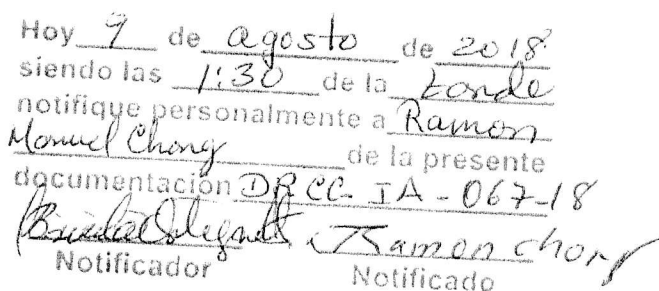 Hoy 9 de agosto de 2018
siendo las 1:30 de la tarde
notifique personalmente a Ramon
Manuel Chong de la presente
documentación DRCC-IA-067-18
Ramon chong
Notificador Notificado